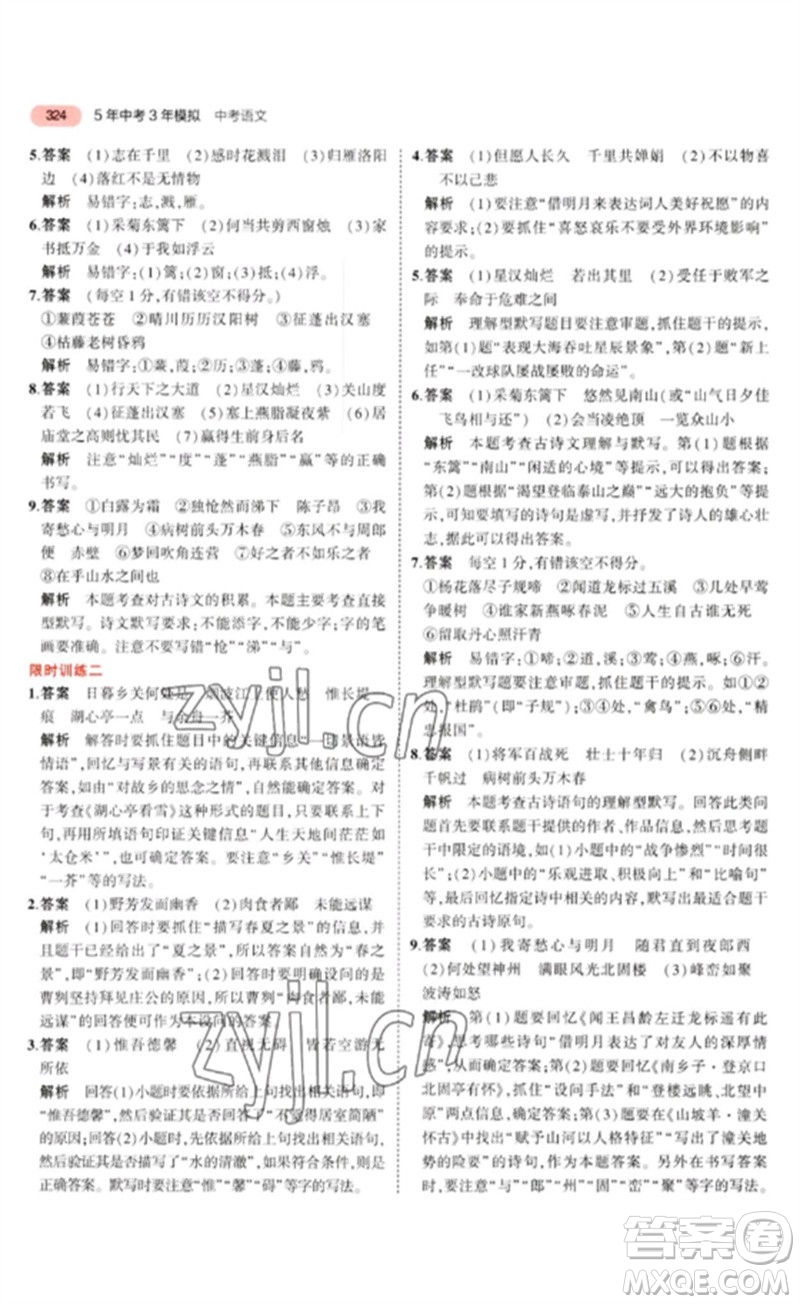 324 5年中考3年模拟 中考语文
5.答案 (1)志在千里 (2)感时花溅泪 (3)归雁洛阳
边 (4)落红不是无情物
解析 易错字:志,溅,雁。
6.答案 (1)采菊东篱下 (2)何当共剪西窗烛 (3)家
书抵万金 (4)于我如浮云
解析 易错字:(1)篱;(2)烛;(4)浮。
7.答案 (每空1分,有错该空不得分。)
①蒹葭苍苍 ②晴川历历汉阳树 ③征蓬出汉塞
④枯藤老树昏鸦
解析 易错字:①蒹,葭;③蓬;④藤,鸦。
8.答案 (1)行天下之大道 (2)星汉灿烂 (3)关山度
若飞 (4)征蓬出汉塞 (5)塞上燕脂凝夜紫 (6)居
庙堂之高则忧其民 (7)赢得生前身后名
解析 注意“灿烂”“度”“蓬”“燕脂”“赢”等的正确
书写。
9.答案 ①白露为霜 ②独怆然而涕下 陈子昂 ③我
寄愁心与明月 ④病树前头万木春 ⑤东风不与周郎
便 赤壁 ⑥梦回吹角连营 ⑦好之者不如乐之者
⑧在乎山水之间也
解析 本题考查对古诗文的积累。本题主要考查直接
型默写。诗文默写要求:不能添字,不能少字,字的笔
画要准确。注意不要写错“怆”“涕”“与”。
限时训练二
1.答案 日暮乡关何处是 烟波江上使人愁 惟长堤
痕 湖心亭一点 与余舟一芥
解析 解答时要抓住题目中的关键信息——即景语皆
情语”,回忆与写景有关的语句,再联系其他关键信息
确定答案。如“对故乡的思念之情”,便可确定答案。对
于考查《湖心亭看雪》这种形式的题目,首先回顾原文,
再用所填语句印证关键信息“人生天地间茫茫如
‘太仓米’”,便可确定答案。要注意“乡关”“惟长堤”
“一芥”等的写法。
2.答案 (1)野芳发而幽香 (2)肉食者鄙 未能远谋
解析 (1)回答时要抓住“描写春夏之景”的信息,并
且题干中已经出现了“夏之景”,所以此题答案为“春之
景”,即“野芳发而幽香”;(2)回答时要明确设问的是
曹刿坚持拜见庄公的原因,所以“肉食者鄙,未能
远谋”可确定作为本设问的答案。
3.答案 (1)惟吾德馨 (2)直视无碍 皆若空游无
所依
解析 回答(1)小题时要依据所给上句找出相关语
句,即“惟吾德馨”,然后验证其是否回答了“不觉得居室简陋”
的原因;回答(2)小题时要依据所给上句找出相关语句,
然后验证其是否描写了“水的清澈”,如果符合条件,则是
正确答案。默写时要注意“惟”“馨”“碍”等字的写法。
4.答案 (1)但愿人长久 千里共婵娟 (2)不以物喜
不以己悲
解析 (1)要注意“借明月来表达词人美好祝愿”的
内容要求;(2)要抓住“喜怒哀乐不要受外界环境影响”
的提示。
5.答案 (1)星汉灿烂 若出其里 (2)受任于败军之
际 奉命于危难之间
解析 理解型默写题目要注意审题,抓住题干的提示,
如“表现大海吞吐星辰景象”,抓住第(2)题“新上
任”“一改球队屡战屡败的命运”。
6.答案 (1)采菊东篱下 悠然见南山(或“山气日夕佳
飞鸟相与还”) (2)会当凌绝顶 一览众山小
解析 本题考查古诗文理解与默写。第(1)题根据
“东篱”“南山”“闲适的心境”等提示,可以得出答案;
第(2)题根据“渴望登临泰山之巅”“远大的抱负”等提
示,可知要填写的诗句是虚写,并抒发了诗人的雄心壮
志,据此可以得出答案。
7.答案 每空1分,有错该空不得分。
①杨花落尽子规啼 ②闻道龙标过五溪 ③几处早莺
争暖树 ④谁家新燕啄春泥 ⑤留取丹心照汗青
解析 易错字:①啼;②溪;③莺;④燕;⑥汗。
理解型默写题要抓住题干中的关键词语。如①②
处,“杜鹃”(即“子规”);③④处,“禽鸟”;⑥处,“精忠
报国”。
8.答案 (1)将军百战死 壮士十年归 (2)沉舟侧畔
千帆过 病树前头万木春
解析 本题考查古诗语句的理解型默写。回答此类问
题首先要联系题干提供的作者、作品信息,然后思考题
干中限定的语境,如(1)中的“战争惨烈”“时间很
长”等提示;(2)中的“乐观进取、积极向上”“比喻句”
等,最后回忆指定诗中相关的内容,筛选出符合题干
要求的古诗原句。
9.答案 (1)我寄愁心与明月 随君直到夜郎西
(2)何处望神州 满眼风光北固楼 (3)峰峦如聚
波涛如怒
解析 第(1)题要回忆《闻王昌龄左迁龙标遥有此
寄》,思考哪些诗句“借明月表达了对友人的深厚情
感”,即可确定答案。第(2)题要回忆《南乡子·登京口
北固亭有怀》,抓住“设问手法”“登楼远眺,北望中
原”,可得出答案。第(3)题要在《山坡羊·潼关
怀古》中找出“赋予山河以人格特征”“写出了潼关地
势的险要”的诗句,作为本题答案。另外在书写答案
时,要注意“与”“郎”“州”“固”“峦”“聚”等字的写法。
zyjl.cn
zyjl.cn
答案圈
MXQE.COM